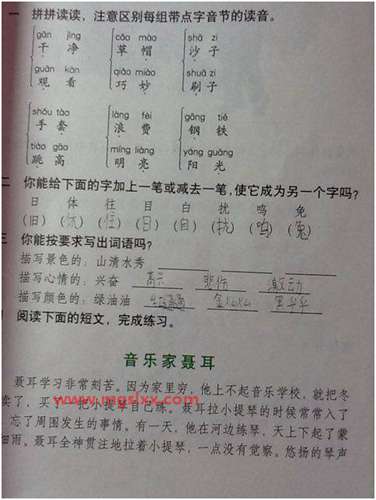 一 拼拼读读，注意区别每组带点字音节的读音。
gān jìng cǎo mào shā zi
干 净 草 帽 沙 子
guān kàn qiǎo miào shuā zi
观 看 巧 妙 刷 子
shǒu tào làng fèi gāng tiě
手 套 浪 费 钢 铁
tiào gāo míng liàng yáng guāng
跳 高 明 亮 阳 光
二 你能给下面的字加上一笔或减去一笔，使它成为另一个字吗？
日 体 往 目 白 扰 鸣 免
(旧) ( ) (住) (日) (自) (扰) (鸣) (兔)
三 你能按要求写出词语吗？
描写景色的：山清水秀
描写心情的：兴奋 高兴 悲伤 激动
描写颜色的：绿油油 金灿灿
阅读下面的短文，完成练习。
音乐家聂耳
聂耳学习非常刻苦。因为家里穷，他上不起音乐学校，就把冬
卖了，买了一把小提琴自己练。聂耳拉小提琴的时候常常入了
忘了周围发生的事情。有一天，他在河边练琴，天上下起了蒙
细雨。聂耳全神贯注地拉着小提琴，一点没有觉察。悠扬的琴声
www.mgslxx.com